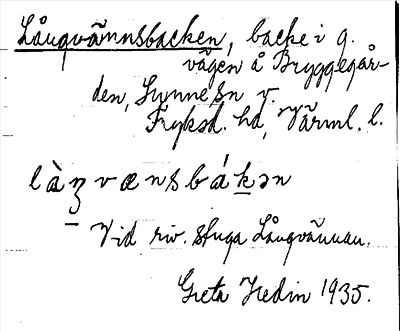 Långvännsbacken, backe i g.
vägen å Bryggegår-
den, Sunne sn v.
Fryksd. hd, Värml. l.
làŋvænsbákən
Vid riv. stuga Långvännan.
Greta Hedin 1935.